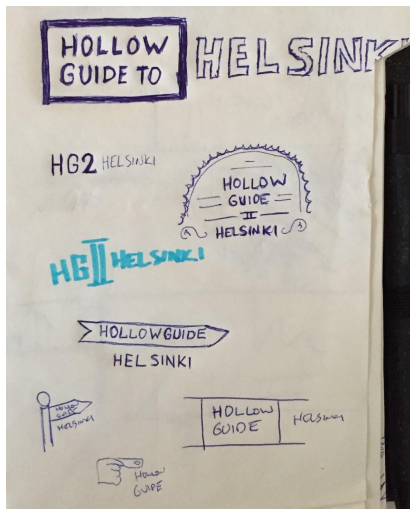 HOLLOW
GUIDE TO
HELSINKI
HG2 HELSINKI
HOLLOW
GUIDE
II
HELSINKI
HGII HELSINKI
HOLLOWGUIDE
HELSINKI
HOLLOW
GUIDE
HELSINKI
HOLLOW
GUIDE
HELSINKI
HOLLOW
GUIDE